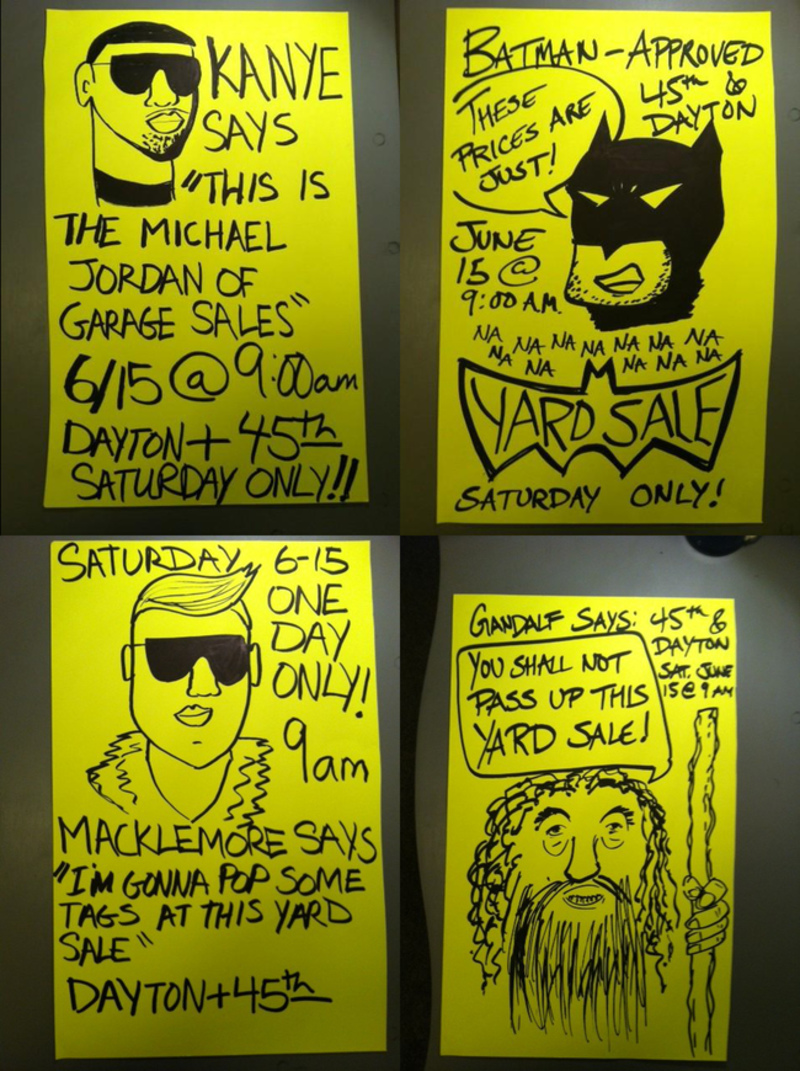 KANYE
SAYS
"THIS IS
THE MICHAEL
JORDAN OF
GARAGE SALES"
6/15 @ 9:00am
DAYTON + 45th
SATURDAY ONLY!!
BATMAN-APPROVED
45th &
DAYTON
THESE
PRICES ARE
JUST!
JUNE
15 @
9:00 A.M.
NA NA NA NA NA NA NA
NA NA NA NA NA
YARD SALE
SATURDAY ONLY!
SATURDAY, 6-15
ONE
DAY
ONLY!
9am
MACKLEMORE SAYS
"I'M GONNA POP SOME
TAGS AT THIS YARD
SALE"
DAYTON+45th
GANDALF SAYS:
45th &
DAYTON
SAT. JUNE
15 @ 9 AM
YOU SHALL NOT
PASS UP THIS
YARD SALE!